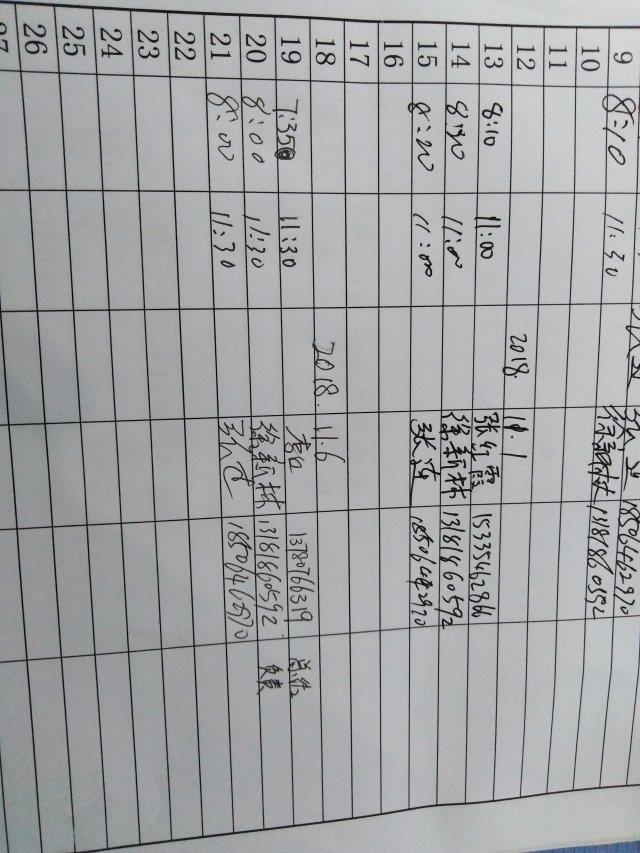 9 8:10 11:30 18506462970
10 13181860592
11
12 2018. 11.1
13 8:10 11:00 张红霞 15335462866
14 8:30 11:00 徐新林 13181860592
15 8:20 11:00 张莲 18506462970
16
17
18 2018. 11.6
19 7:35 11:30 李红 13780766319
20 8:00 11:30 徐新林 13181860592 负责
21 8:00 11:30 18506462970
22
23
24
25
26
27